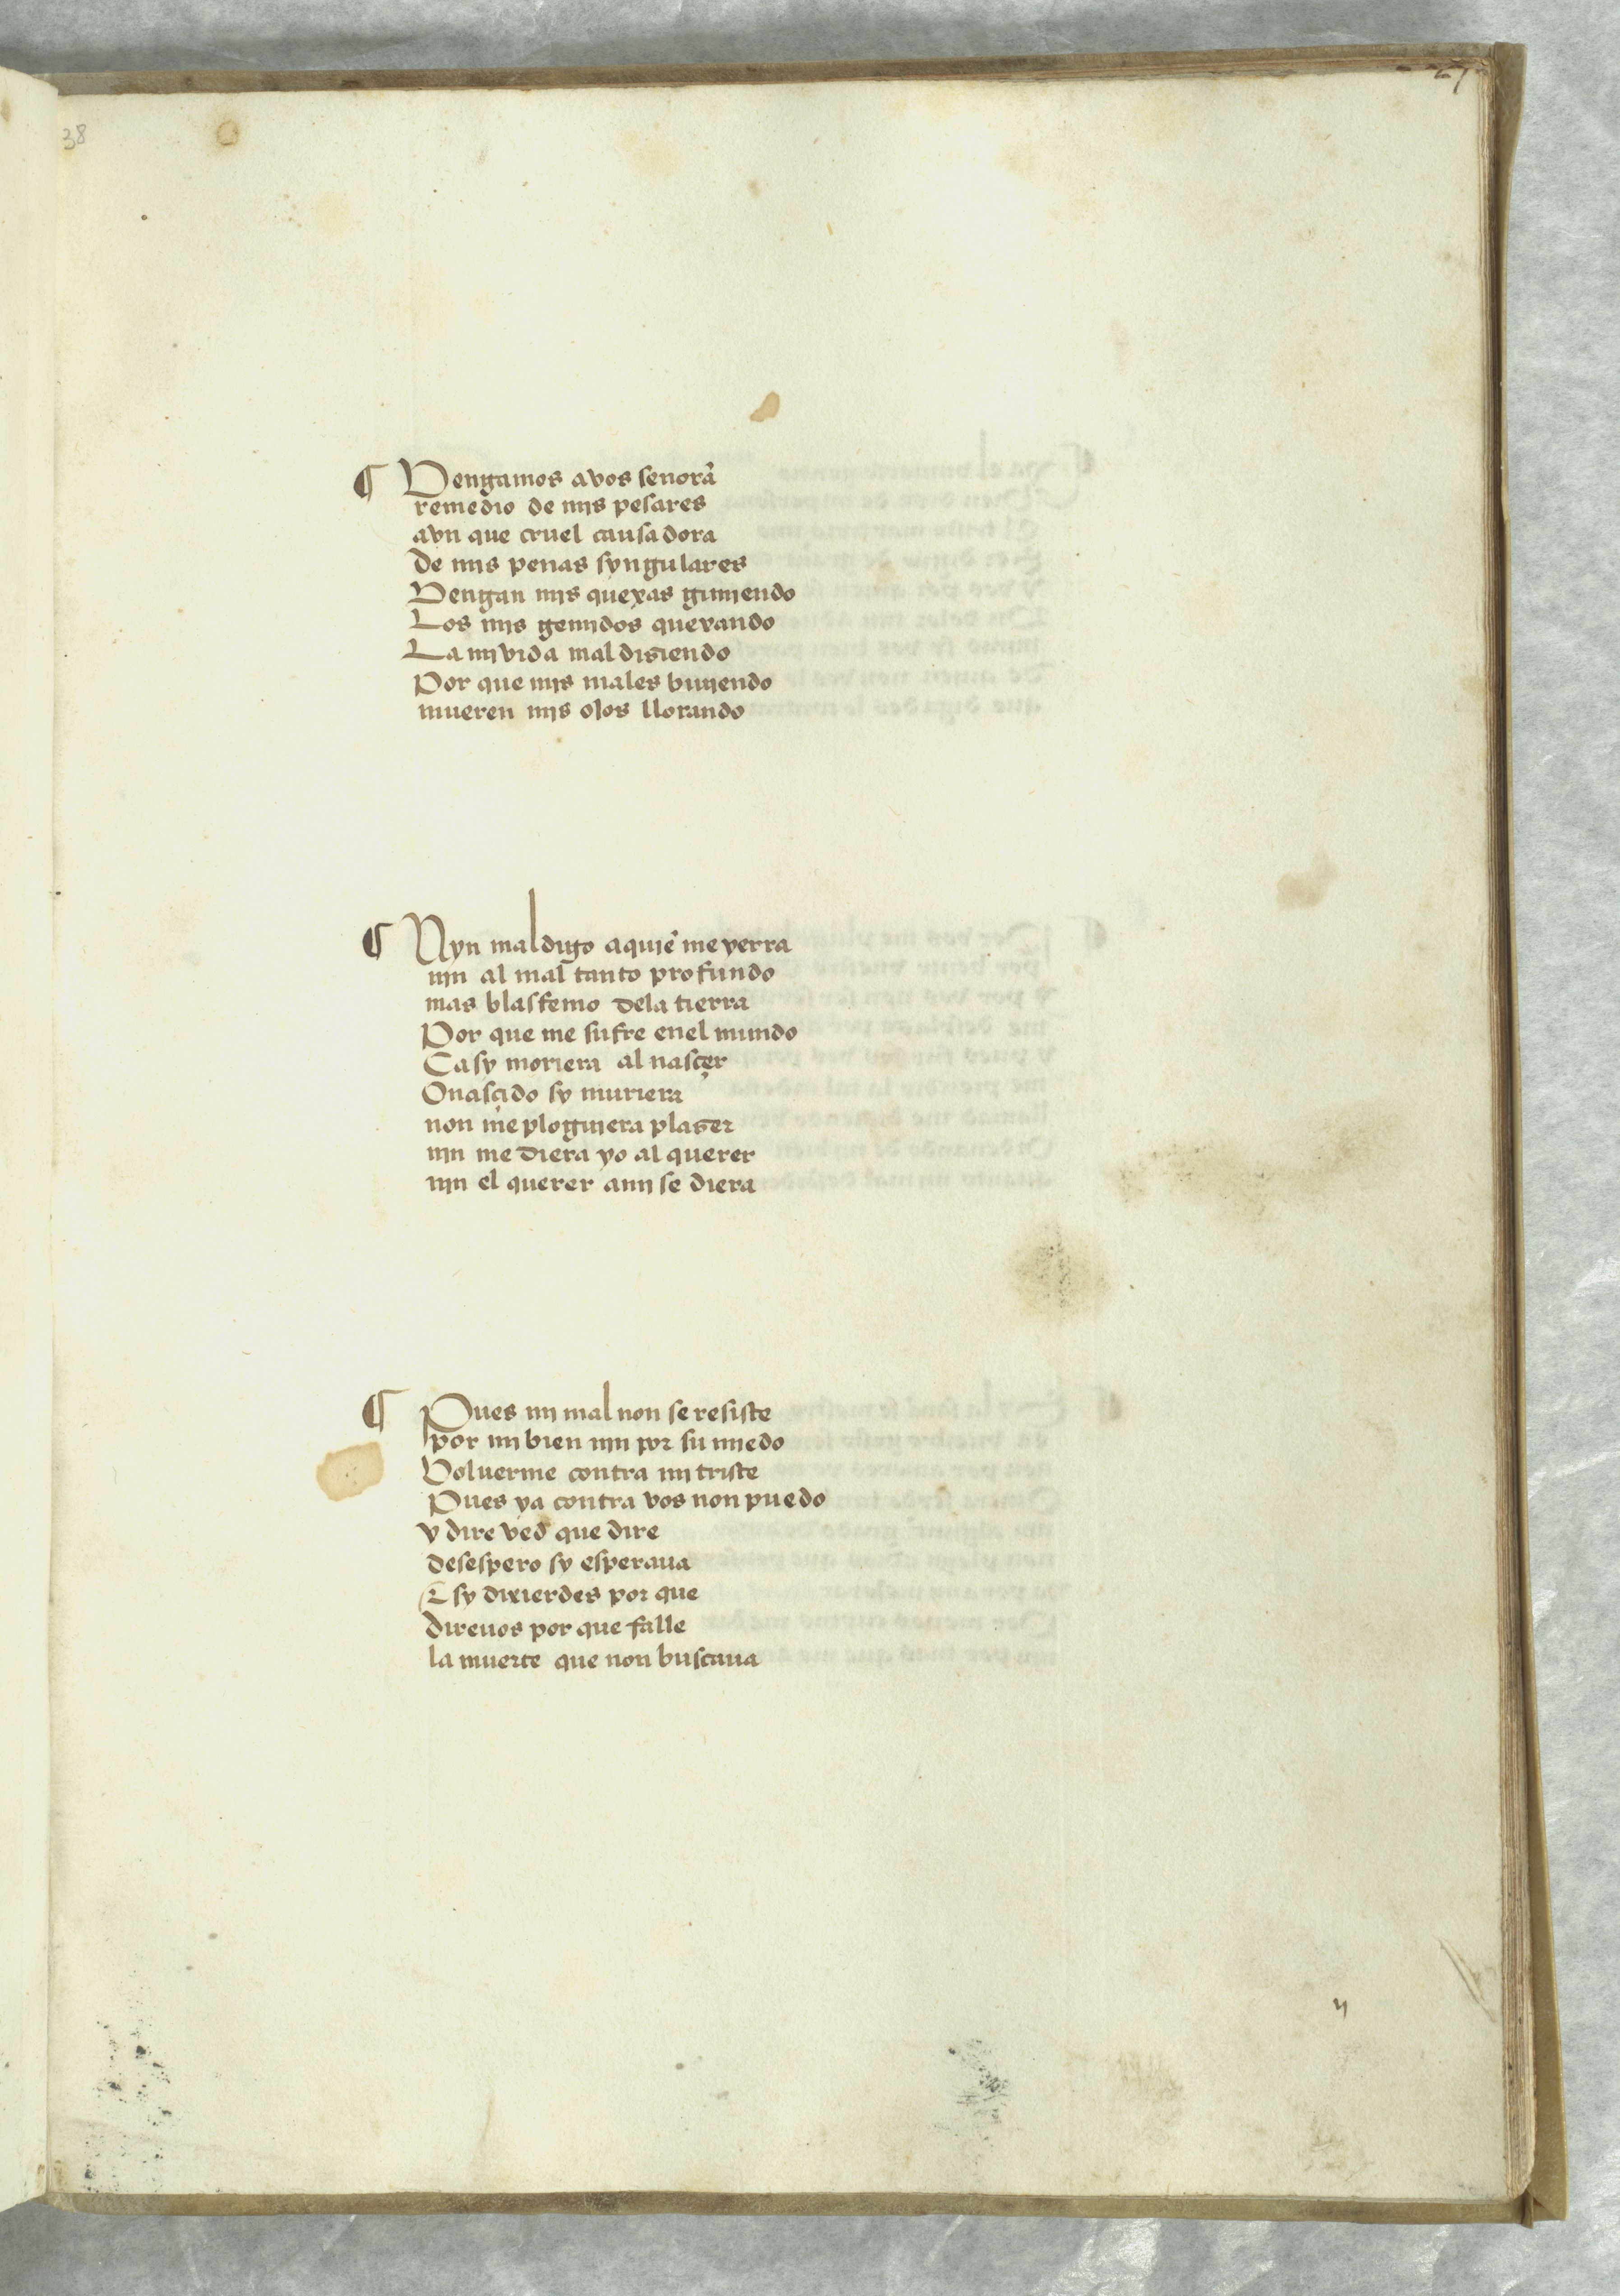 38
27
¶ Vengamos avos señora
remedio de mjs pesares
avn que cruel causadora
De mis penas syngulares
Vengan mjs quexas gimjendo
Los mjs gemjdos quexando
La mj vida mal disiendo
Por que mjs males bivjendo
mueren mjs ojos llorando
¶ Nyn maldigo aquiẽ me yerra
njn al mal tanto profundo
mas blasfemo dela tierra
Por que me sufre enel mundo
Ca sy moriera al nasçer
O nasçido sy muriera
non me ploguiera plaser
njn me diera yo al querer
njn el querer amj se diera
¶ Pues mj mal non se resiste
por mj bien njn por su mjedo
Voluerme contra mj triste
Pues ya contra vos non puedo
y dire ved que dire
desespero sy esperaua
E sy dixierdes por que
direuos por que falle
la muerte que non buscaua